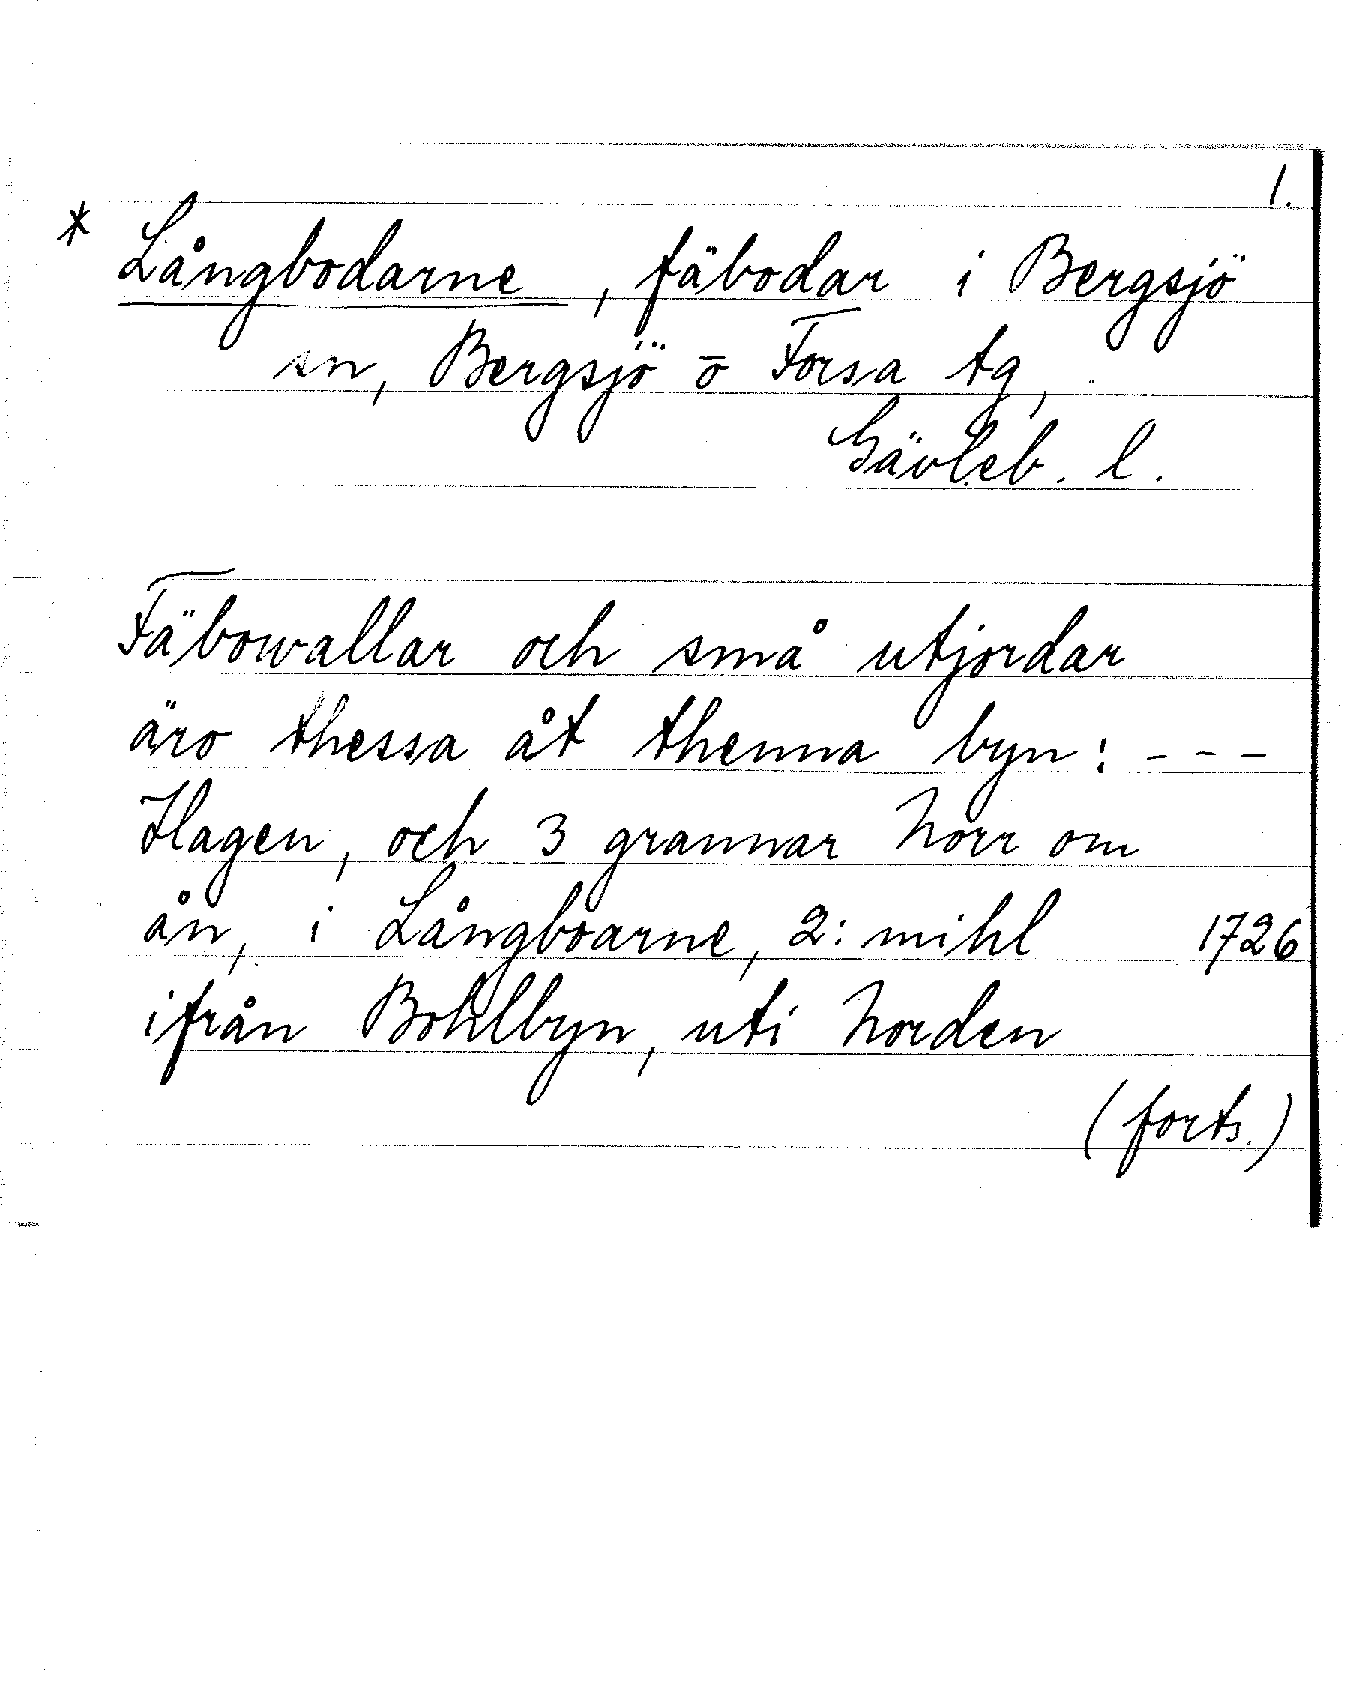 1.
* Långbodarne, fäbodar i Bergsjö
sn, Bergsjö o Forsa tg,
Gävleb. l.
Fäbowallar och små utjordar
äro thessa åt thenna byn: - - -
Hagen, och 3 grannar Norr om
ån, i Långboarne, 2: mihl 1726
ifrån Bohlbyn, uti Norden
(forts.)